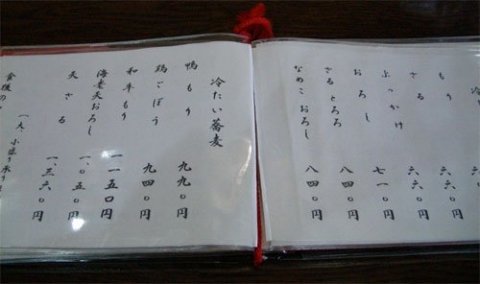 もり
ざる 六六〇円
ぶっかけ 六六〇円
おろし 七一〇円
ざるとろろ 八四〇円
なめこおろし 八四〇円
冷たい蕎麦
鴨もり 九九〇円
鶏ごぼう 九四〇円
和牛もり 一一五〇円
海老天おろし 一、〇五〇円
天ざる 一、三六〇円
食後の